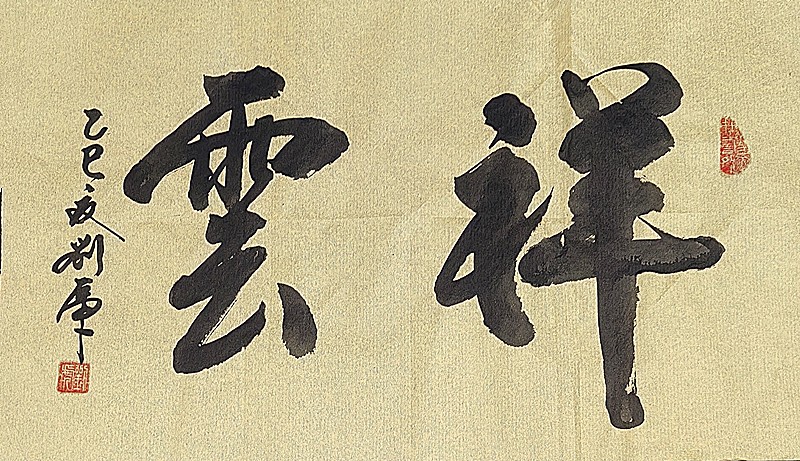 祥雲
乙巳夏劉軍